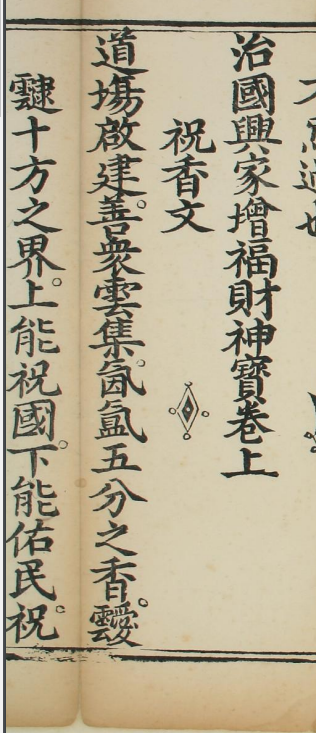 治國興家增福財神寶卷上
祝香文
道塲啟建。善衆雲集。氤氳五分之香。靉
靆十方之界。上能祝國。下能佑民。祝